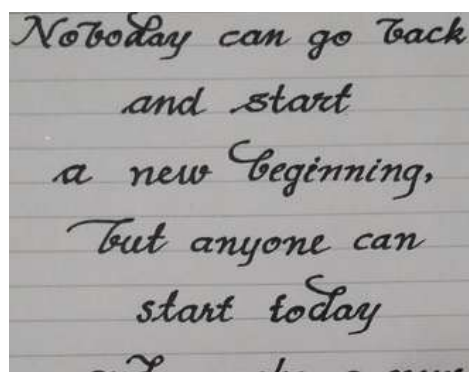 Noboday can go back
and start
a new beginning,
but anyone can
start today